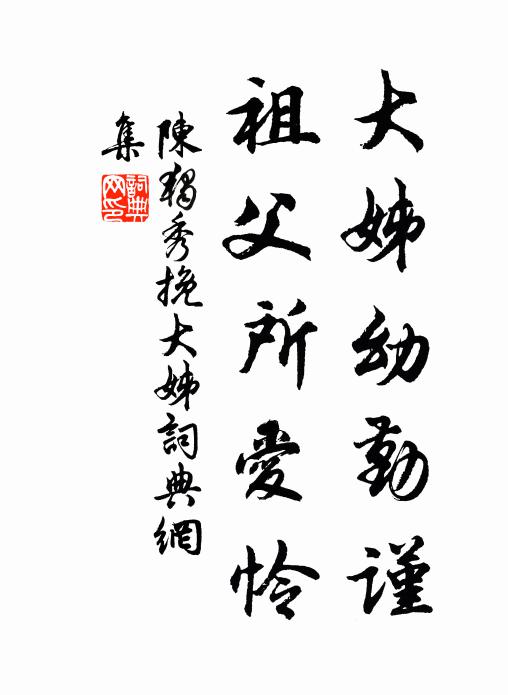 大姊幼勤謹
祖父所愛怜
陳獨秀挽大姊詞典網
集
詞典
网印